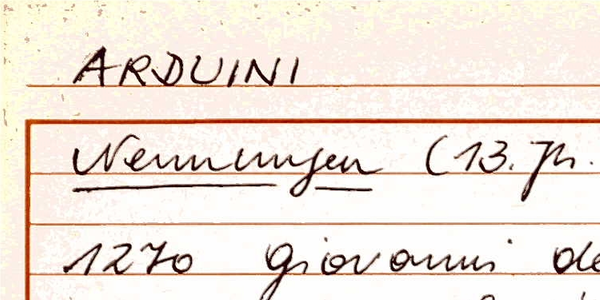 ARDUINI
Nennungen (13. Jh.
1270 Giovanni de